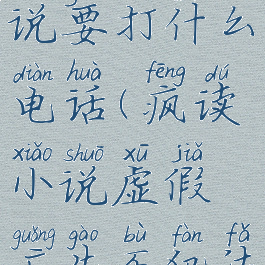 说要打什么
diàn huà fēng dú
电话(疯读
xiǎo shuō xū jiǎ
小说虚假
guǎng gào bù fàn fǎ